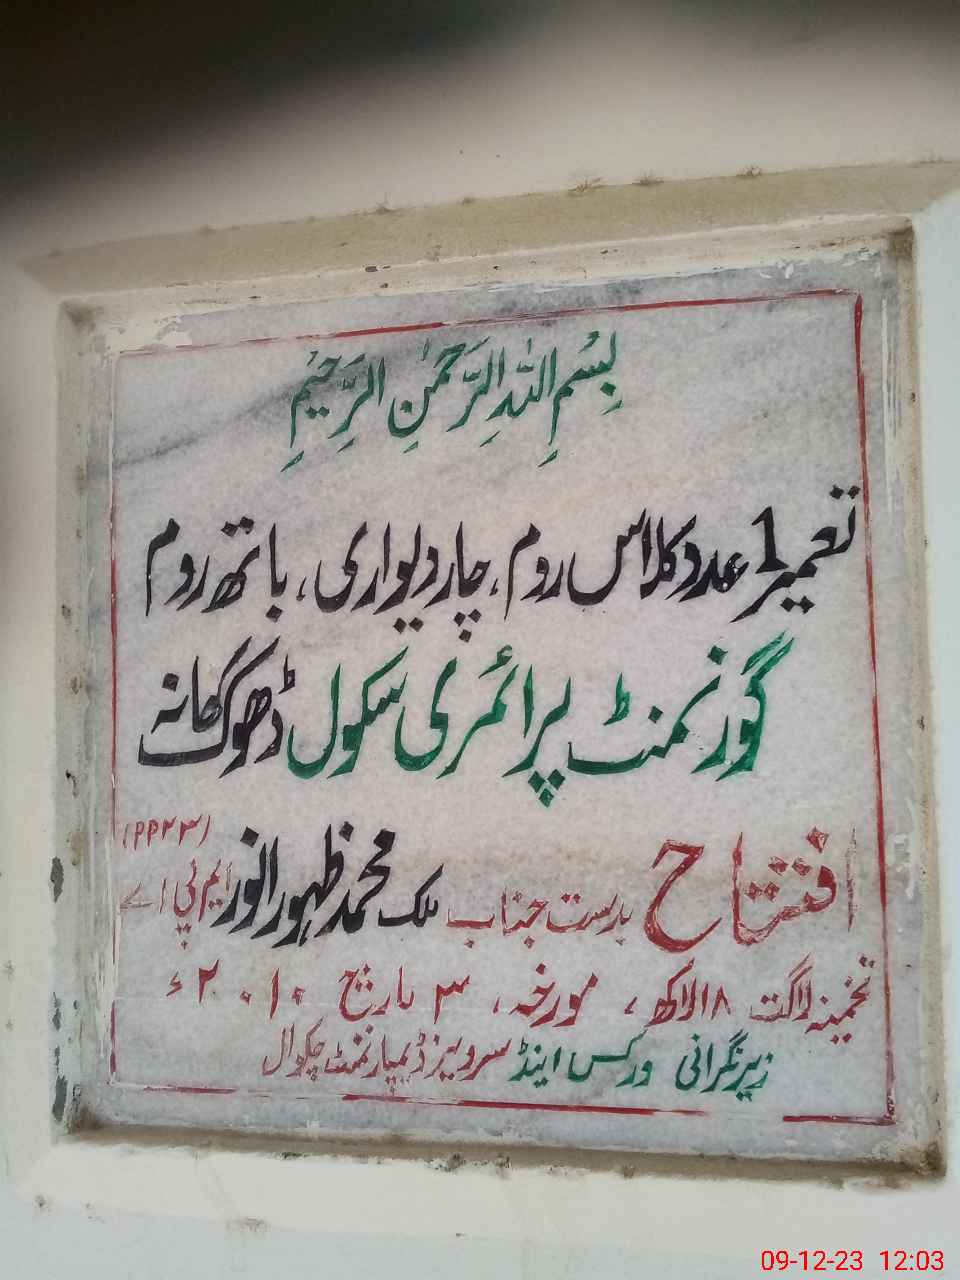 بِسْمِ اللّٰہِ الرَّحْمٰنِ الرَّحِیْمِ
تعمیر 1 عدد کلاس روم، چار دیواری، باتھ روم
گورنمنٹ پرائمری سکول ڈھوک گھانہ
افتتاح بدست جناب ملک محمد ظہور انور ایم پی اے (PP۲۳)
تخمینہ لاگت ۱۸ لاکھ، مورخہ، ۳ مارچ ۲۰۱۰ء
زیرنگرانی ورکس اینڈ سروسیز ڈیپارٹمنٹ چکوال
09-12-23 12:03